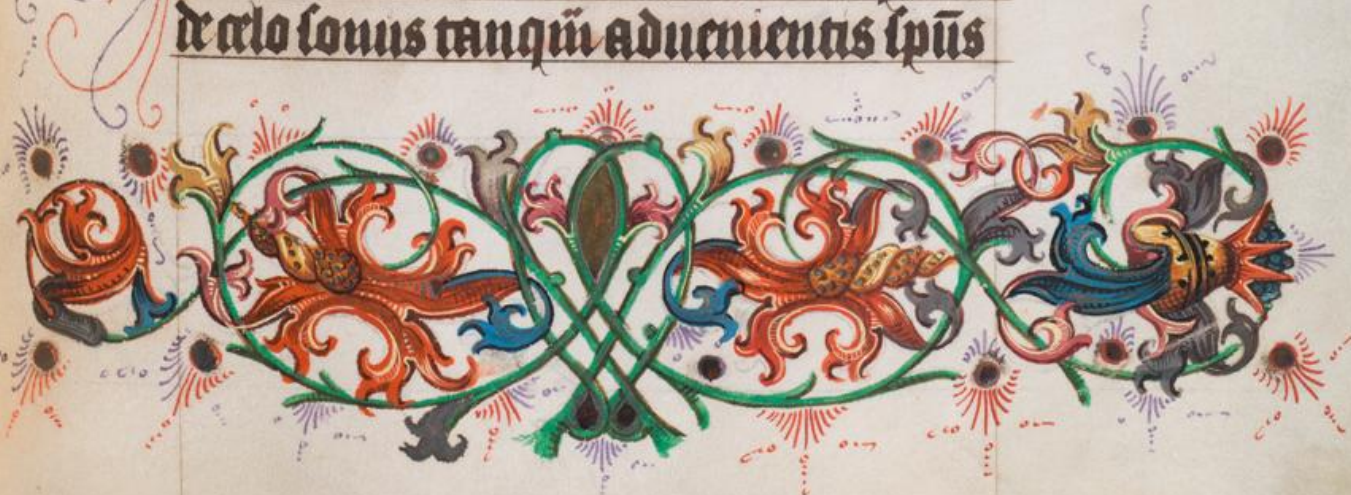 de celo sonus tanqm̃ aduenientis spūs